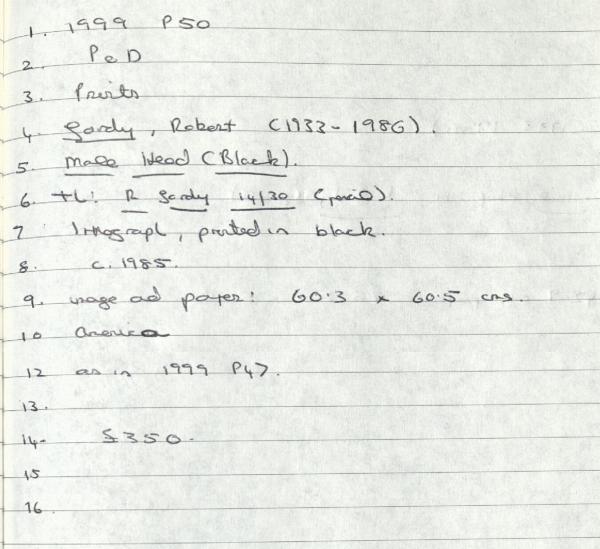 1. 1999 P50
2. P & D
3. Prints
4. Gordy, Robert (1933-1986).
5. Male Head (Black).
6. +L: R Gordy 14/30 (pencil).
7 lithograph, printed in black.
8. c.1985.
9. image and paper: 60.3 x 60.5 cms.
10 America
12 as in 1999 P47.
13.
14- $350.
15
16.